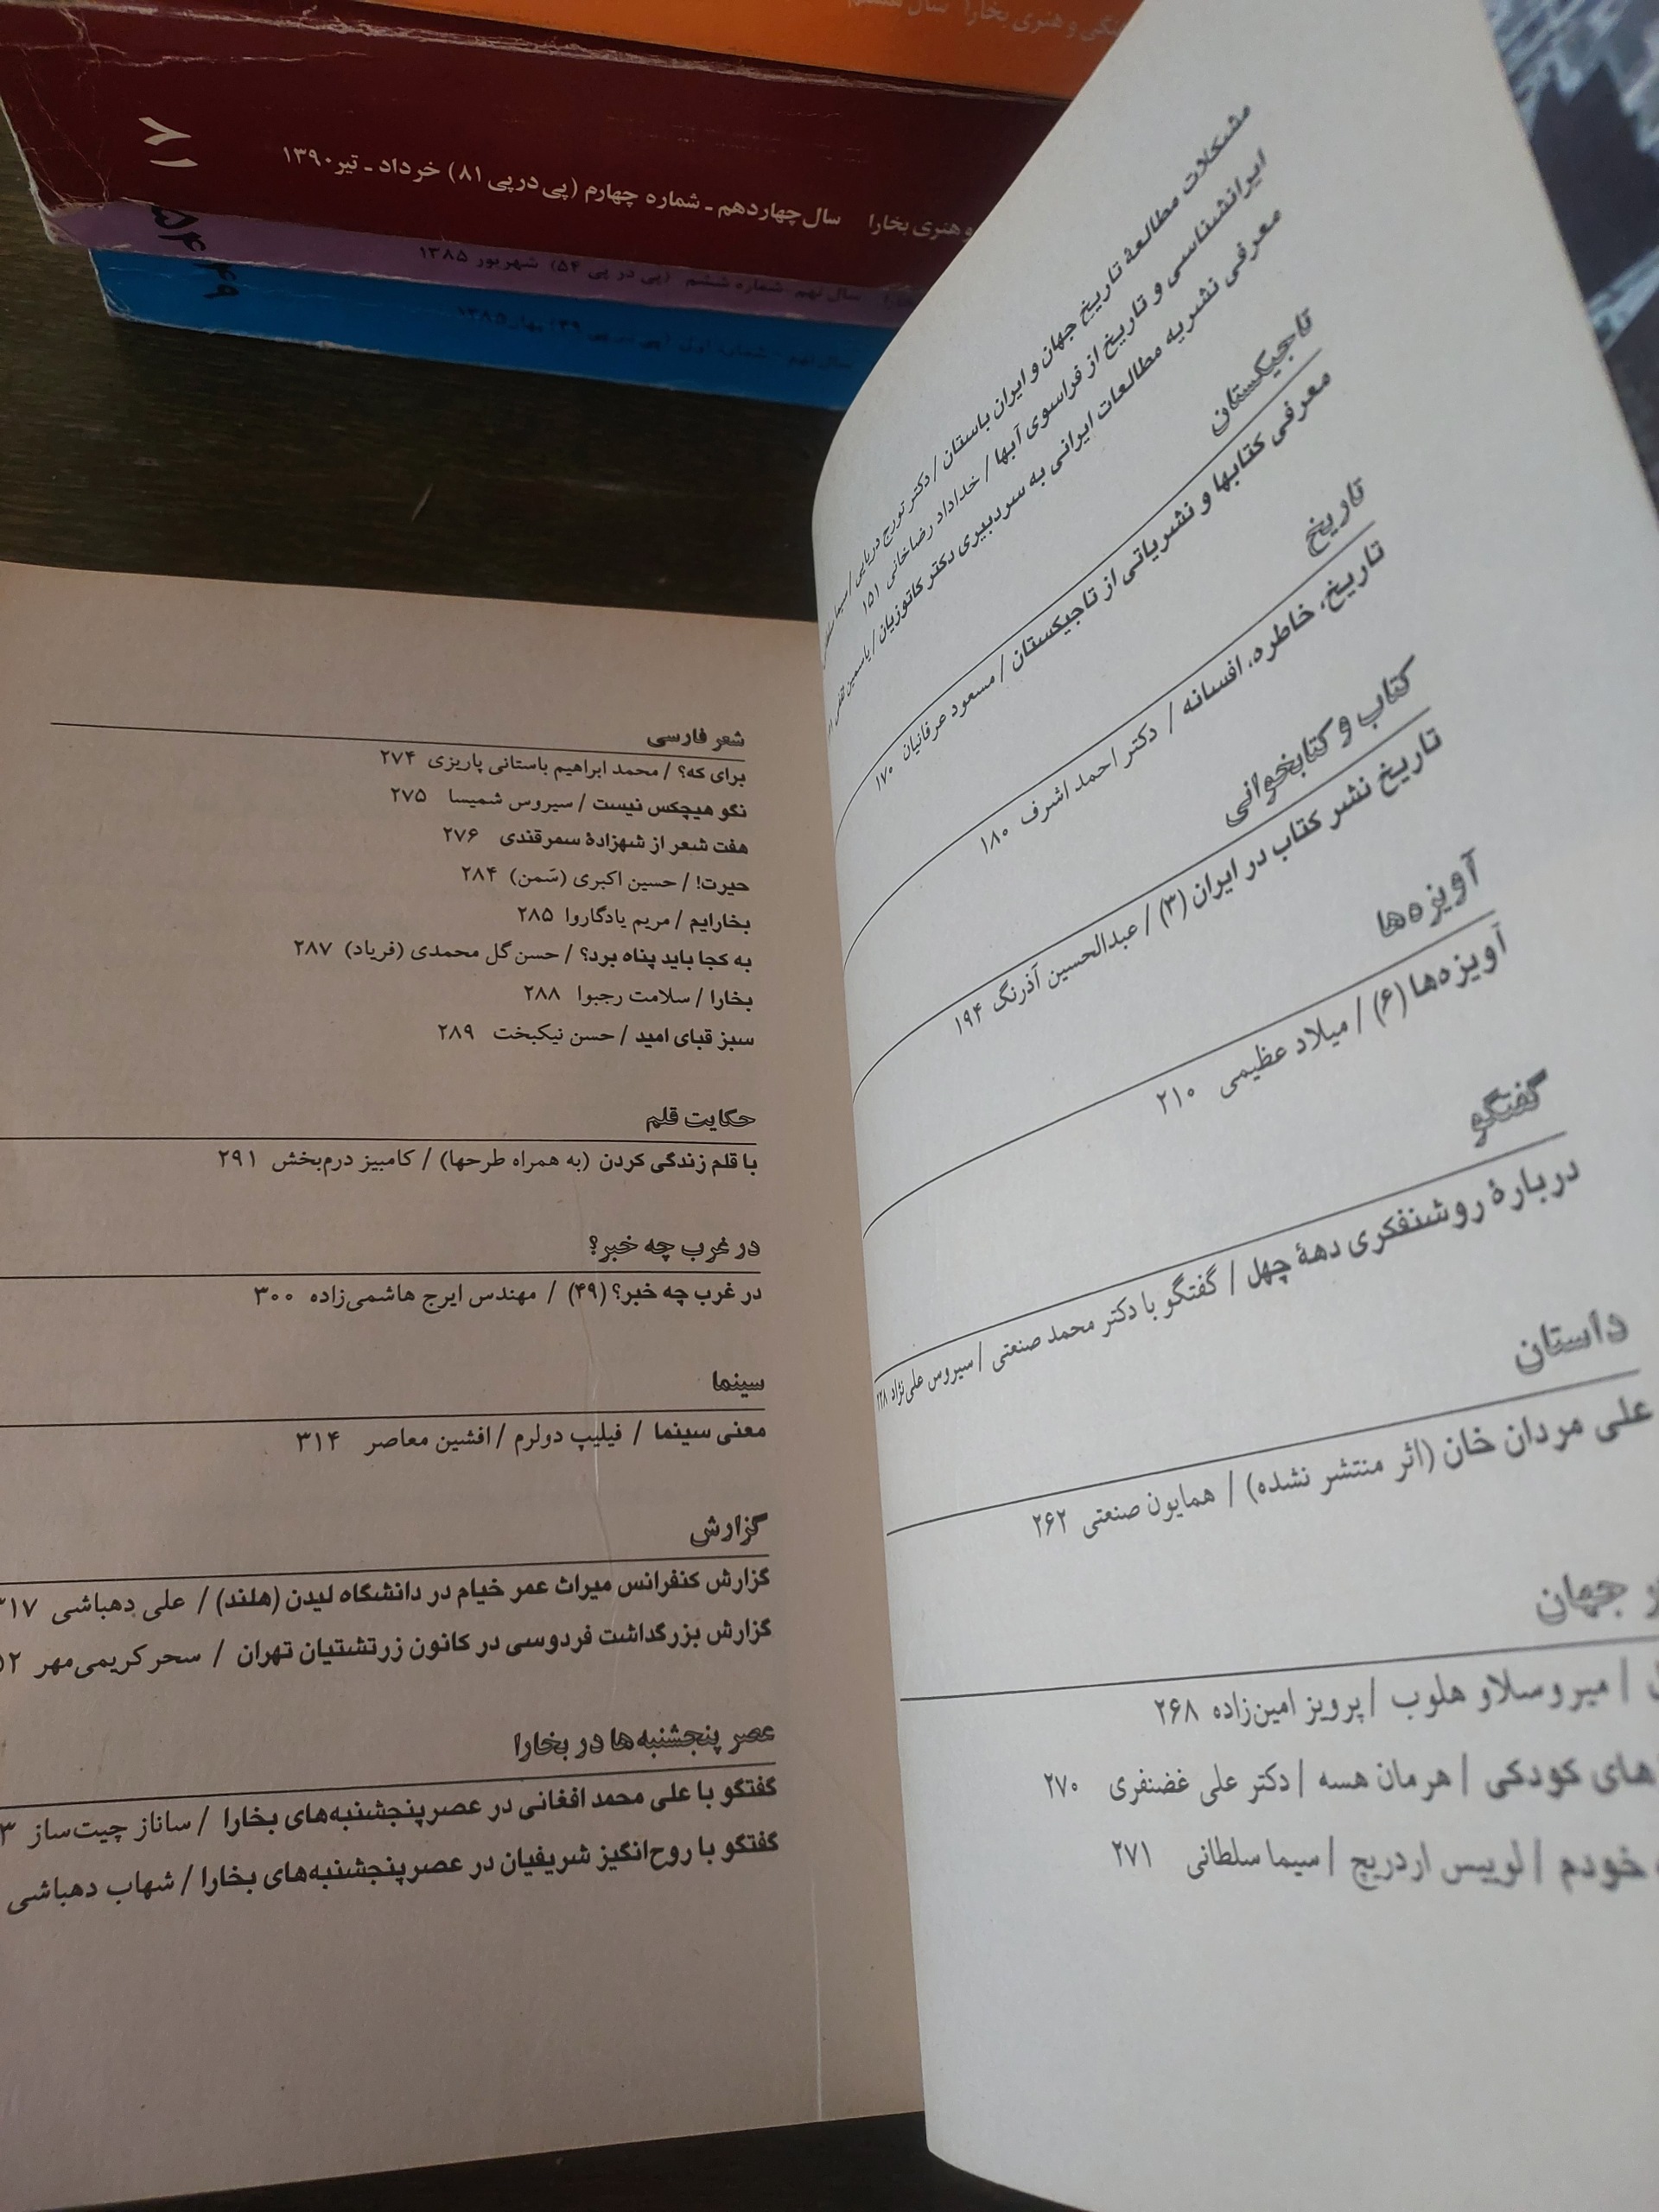 نگی و هنری بخارا سال هشتم
۸۱
و هنری بخارا سال چهاردهم ـ شماره چهارم (پی در پی ۸۱) خرداد ـ تیر ۱۳۹۰
۵۴
سال نهم شماره ششم (پی در پی ۵۴) شهریور ۱۳۸۵
۴۹
سال نهم - شماره اول (پی در پی ۴۹) بهار ۱۳۸۵
مشکلات مطالعهٔ تاریخ جهان و ایران باستان / دکتر تورج دریایی / سیما
ایرانشناسی و تاریخ از فراسوی آبها / خداداد رضاخانی ۱۵۱
معرفی نشریه مطالعات ایرانی به سردبیری دکتر کاتوزیان / یاسمین
تاجیکستان
معرفی کتابها و نشریاتی از تاجیکستان / مسعود عرفانیان ۱۷۰
تاریخ
تاریخ، خاطره، افسانه / دکتر احمد اشرف ۱۸۰
کتاب و کتابخوانی
تاریخ نشر کتاب در ایران (۳) / عبدالحسین آذرنگ ۱۹۴
آویزه‌ها
آویزه‌ها (۶) / میلاد عظیمی ۲۱۰
گفتگو
دربارهٔ روشنفکری دههٔ چهل / گفتگو با دکتر محمد صنعتی / سیروس علی‌نژاد
داستان
علی مردان خان (اثر منتشر نشده) / همایون صنعتی ۲۶۲
ر جهان
/ میروسلاو هلوب / پرویز امین‌زاده ۲۶۸
های کودکی / هرمان هسه / دکتر علی غضنفری ۲۷۰
خودم / لوییس اردریچ / سیما سلطانی ۲۷۱
شعر فارسی
برای که؟ / محمد ابراهیم باستانی پاریزی ۲۷۴
نگو هیچکس نیست / سیروس شمیسا ۲۷۵
هفت شعر از شهزادهٔ سمرقندی ۲۷۶
حیرت! / حسین اکبری (سَمن) ۲۸۴
بخارایم / مریم یادگاروا ۲۸۵
به کجا باید پناه برد؟ / حسن گل محمدی (فریاد) ۲۸۷
بخارا / سلامت رجبوا ۲۸۸
سبز قبای امید / حسن نیکبخت ۲۸۹
حکایت قلم
با قلم زندگی کردن (به همراه طرحها) / کامبیز درم‌بخش ۲۹۱
در غرب چه خبر؟
در غرب چه خبر؟ (۴۹) / مهندس ایرج هاشمی‌زاده ۳۰۰
سینما
معنی سینما / فیلیپ دولرم / افشین معاصر ۳۱۴
گزارش
گزارش کنفرانس میراث عمر خیام در دانشگاه لیدن (هلند) / علی دهباشی ۳۱۷
گزارش بزرگداشت فردوسی در کانون زرتشتیان تهران / سحر کریمی‌مهر ۵۲
عصر پنجشنبه‌ها در بخارا
گفتگو با علی محمد افغانی در عصر پنجشنبه‌های بخارا / ساناز چیت‌ساز ۳
گفتگو با روح‌انگیز شریفیان در عصر پنجشنبه‌های بخارا / شهاب دهباشی